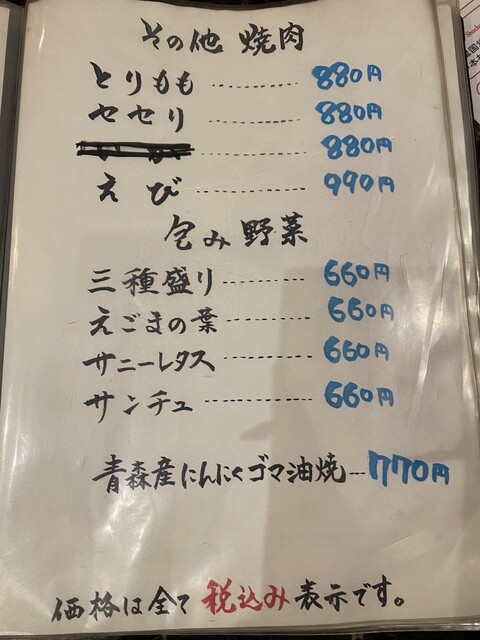 その他 焼肉
とりもも ............ 880円
セセリ ............ 880円
............ 880円
えび ............ 990円
包み野菜
三種盛り ............ 660円
えごまの葉 ............ 660円
サニーレタス ............ 660円
サンチュ ............ 660円
青森産にんにくゴマ油焼 --- 770円
価格は全て税込み表示です。